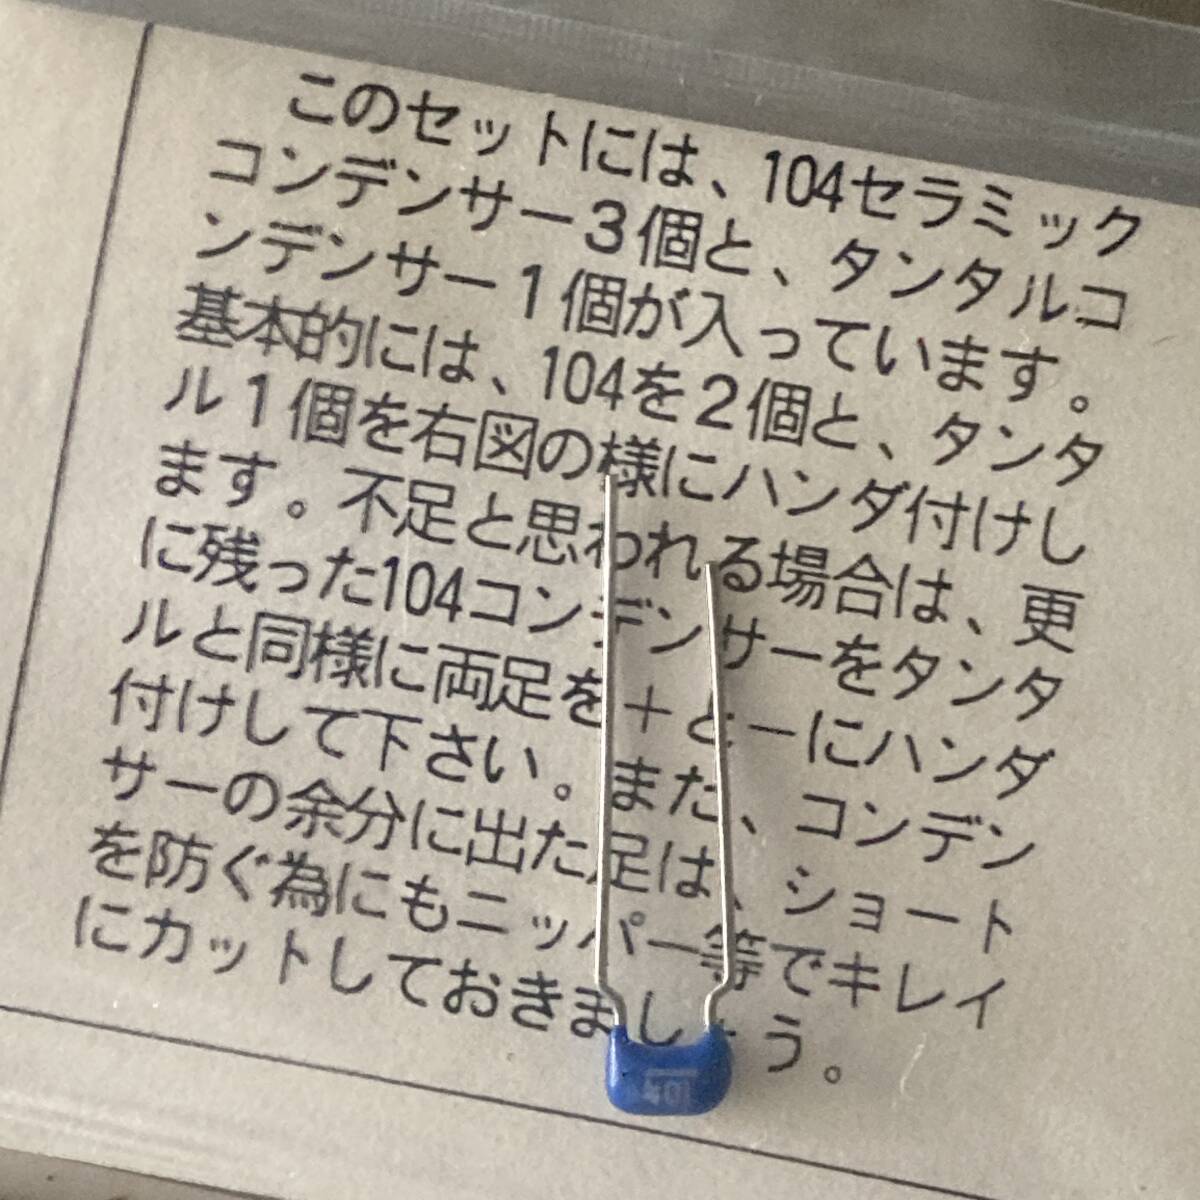 このセットには、104セラミック
コンデンサー3個と、タンタルコ
ンデンサー1個が入っています。
基本的には、104を2個と、タンタ
ル1個を右図の様にハンダ付けし
ます。不足と思われる場合は、更
に残った104コンデンサーをタンタ
ルと同様に両足を+と-にハンダ
付けして下さい。また、コンデン
サーの余分に出た足は、ショート
を防ぐ為にもニッパー等でキレイ
にカットしておきましょう。
104